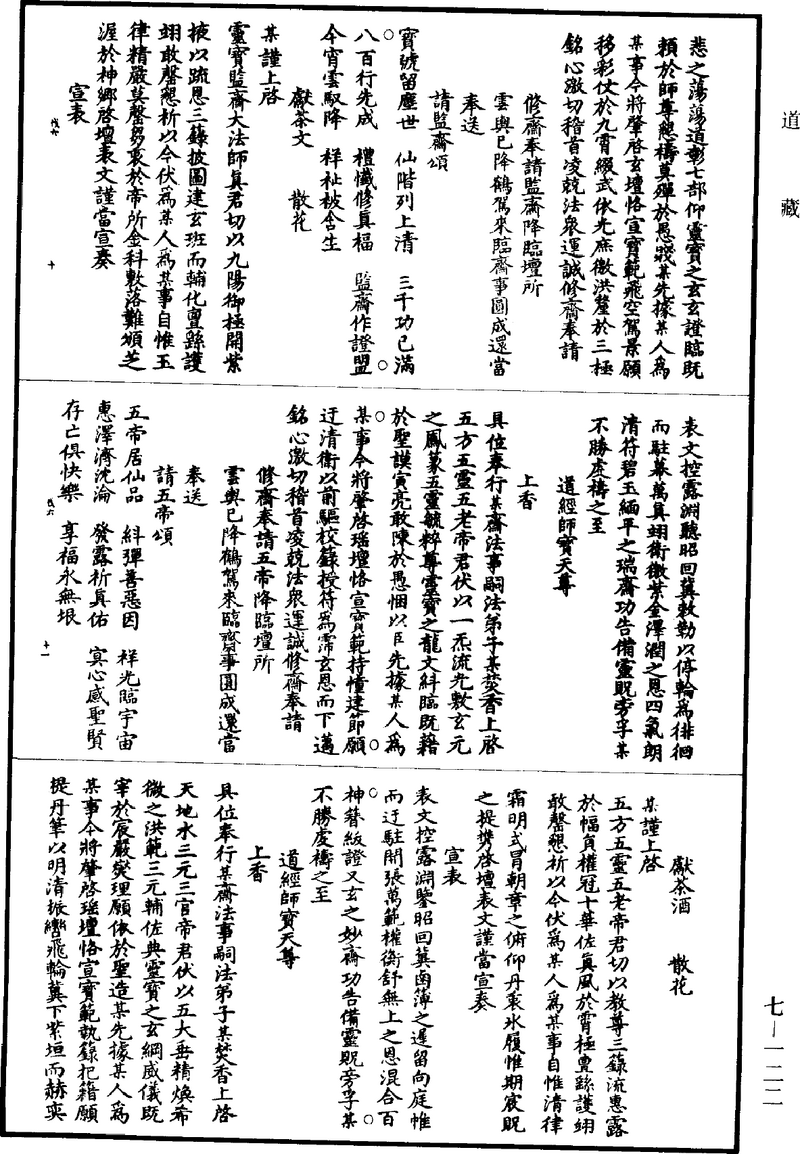 道藏
悲之蕩蕩道彰七部仰靈寶之玄玄證臨既
賴於師尊懇禱莫殫於愚賤某先據某人為
某事今將肇啓玄壇恪宣寶範飛空駕景願
移彩仗於九霄綴武依光庶徼洪釐於三極
銘心激切稽首凌兢法衆運誠修齋奉請
修齋奉請監齋降臨壇所
雲輿已降鶴駕來臨齋事圓成還當
奉送
請監齋頌
寶號留塵世 仙階列上清 三千功已滿
八百行先成 禮懺修真福 監齋作證盟
今宵雲馭降 祥祉被含生
獻茶文 散花
某謹上啓
靈寶監齋大法師真君切以九陽御極開紫
掖以疏恩三籙披圖建玄班而輔化亶繇護
翊敢罄懇祈以今伏為某人為某事自惟玉
律精嚴莫罄芻衷於帝所金科敷落難頒芝
渥於神鄉啓壇表文謹當宣奏
宣表
表文控露淵聽昭回冀敕勒以停輪為徘徊
而駐蓋萬真翊衛徽紫金澤潤之恩四氣朗
清符碧玉緬平之瑞齋功告備靈貺旁孚某
不勝虔禱之至
道經師寶天尊
上香
具位奉行某齋法事嗣法弟子某焚香上啓
五方五靈五老帝君伏以一炁流光敷玄元
之鳳篆五靈毓粹尊靈寶之龍文糾臨既藉
於聖謨寅亮敢陳於愚悃以臣先據某人為
某事今將肇啓瑤壇恪宣寶範持幢建節願
迂清衛以前驅校籙授符為霈玄恩而下邁
銘心激切稽首凌兢法衆運誠修齋奉請
修齋奉請五帝降臨壇所
雲輿已降鶴駕來臨齋事圓成還當
奉送
請五帝頌
五帝居仙品 糾彈善惡因 祥光臨宇宙
惠澤濟沈淪 發露祈真佑 寘心感聖賢
存亡俱快樂 享福永無垠
獻茶酒 散花
某謹上啓
五方五靈五老帝君切以教尊三籙流惠露
於幅員權冠十華佐真風於霄極亶繇護翊
敢罄懇祈以今伏為某人為某事自惟清律
霜明式冒朝章之俯仰丹衷氷履惟期宸貺
之提携啓壇表文謹當宣奏
宣表
表文控露淵鑒昭回冀鹵簿之遲留向庭帷
而迂駐開張萬範權衡舒無上之恩混合百
神簪紱證又玄之妙齋功告備靈貺旁孚某
不勝虔禱之至
道經師寶天尊
上香
具位奉行某齋法事嗣法弟子某焚香上啓
天地水三元三官帝君伏以五大垂精煥希
微之洪範三元輔佐典靈寶之玄綱威儀既
宰於宸嚴爕理願依於聖造某先據某人為
某事今將肇啓瑤壇恪宣寶範執籙把籍願
提丹筆以明清振轡飛輪冀下紫垣而赫奕
七—一二二